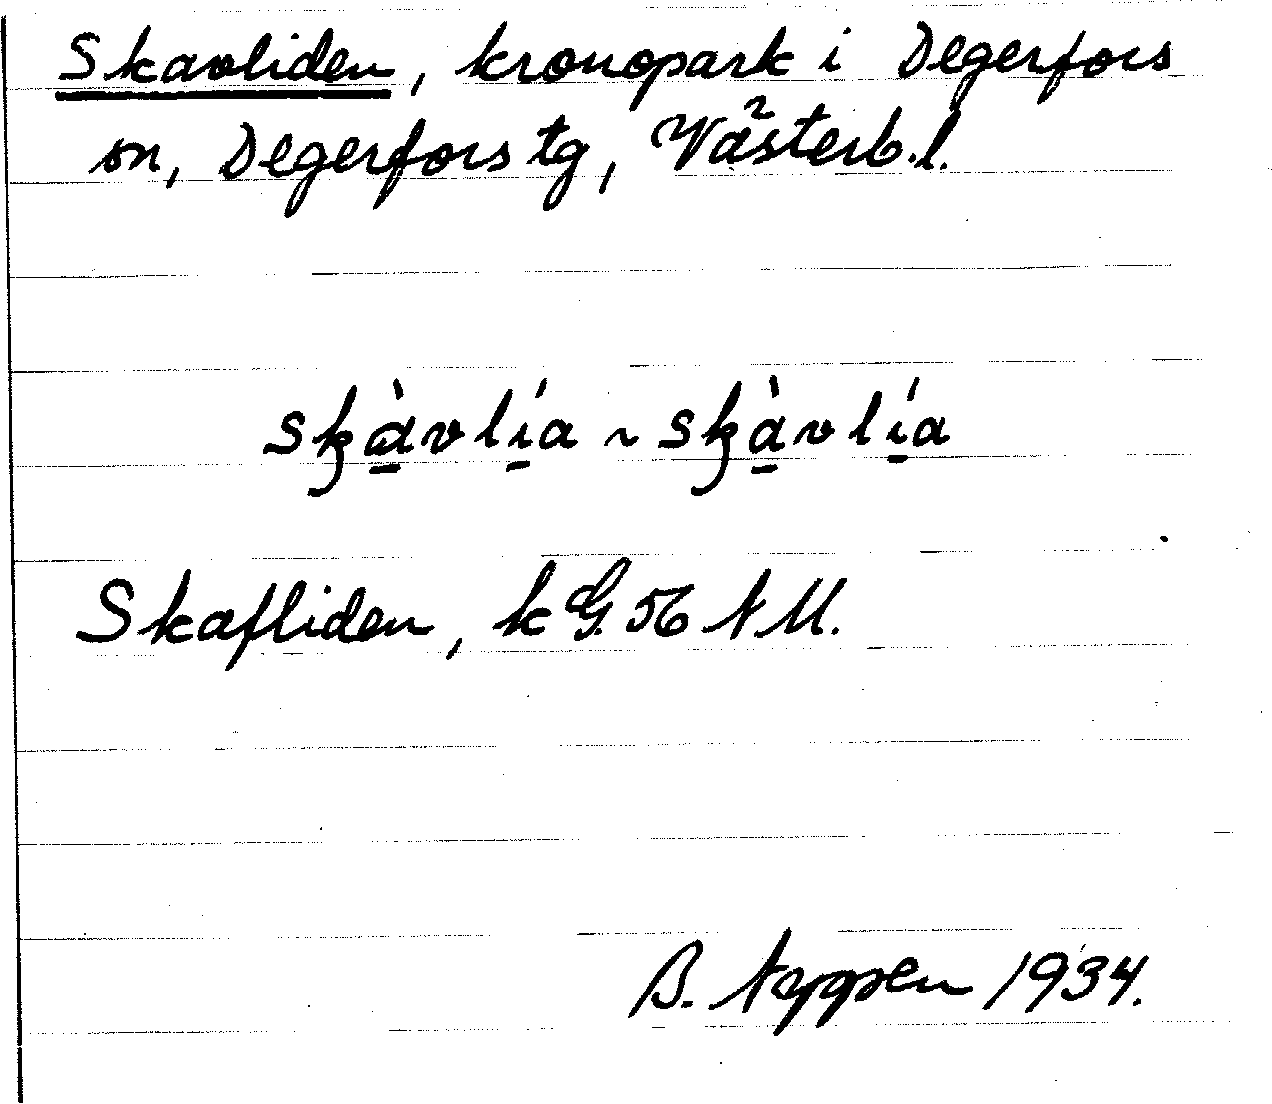 Skavliden, kronopark i Degerfors
sn, Degerfors tg, Västerb. l.
skàvlía ~ skàvlía
Skafliden, k G. 56 N M.
B. 1934.